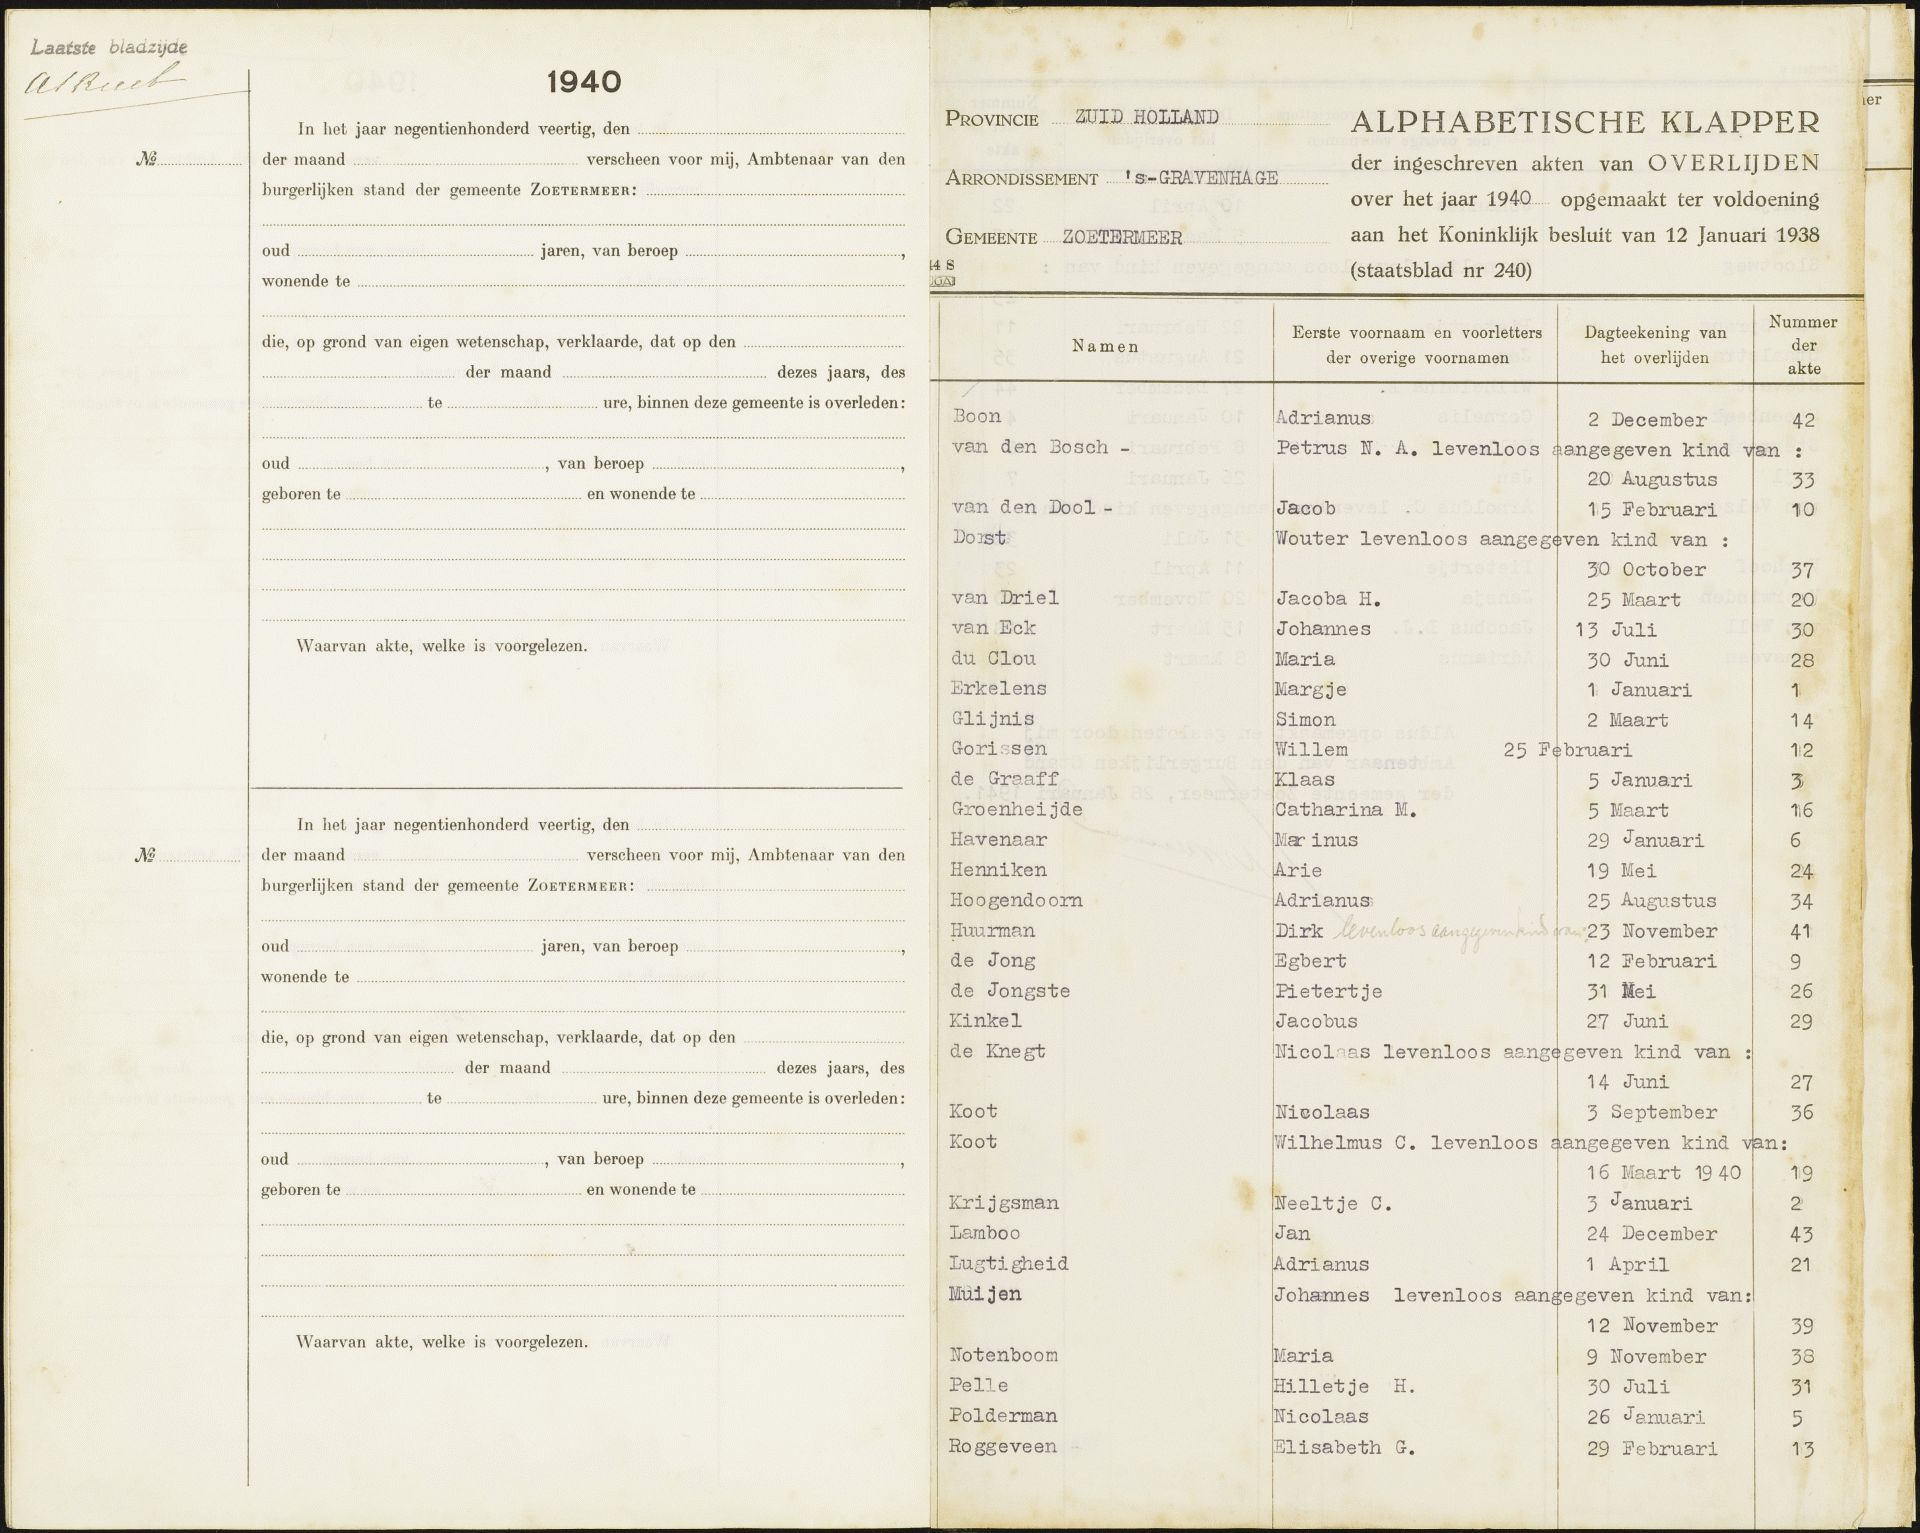 Laatste bladzijde
1940
In het jaar negentienhonderd veertig, den
№
der maand verscheen voor mij, Ambtenaar van den
burgerlijken stand der gemeente ZOETERMEER:
oud jaren, van beroep ,
wonende te
die, op grond van eigen wetenschap, verklaarde, dat op den
der maand dezes jaars, des
te ure, binnen deze gemeente is overleden:
oud , van beroep ,
geboren te en wonende te
Waarvan akte, welke is voorgelezen.
In het jaar negentienhonderd veertig, den
№
der maand verscheen voor mij, Ambtenaar van den
burgerlijken stand der gemeente ZOETERMEER:
oud jaren, van beroep ,
wonende te
die, op grond van eigen wetenschap, verklaarde, dat op den
der maand dezes jaars, des
te ure, binnen deze gemeente is overleden:
oud , van beroep ,
geboren te en wonende te
Waarvan akte, welke is voorgelezen.
PROVINCIE ZUID HOLLAND
ARRONDISSEMENT 's-GRAVENHAGE
GEMEENTE ZOETERMEER
ALPHABETISCHE KLAPPER
der ingeschreven akten van OVERLIJDEN
over het jaar 1940 opgemaakt ter voldoening
aan het Koninklijk besluit van 12 Januari 1938
(staatsblad nr 240)
Namen Eerste voornaam en voorletters der overige voornamen Dagteekening van het overlijden Nummer der akte
Boon Adrianus 2 December 42
van den Bosch - Petrus N. A. levenloos aangegeven kind van :
20 Augustus 33
van den Dool - Jacob 15 Februari 10
Dorst Wouter levenloos aangegeven kind van :
30 October 37
van Driel Jacoba H. 25 Maart 20
van Eck Johannes 13 Juli 30
du Clou Maria 30 Juni 28
Erkelens Margje 1 Januari 1
Glijnis Simon 2 Maart 14
Gorissen Willem 25 Februari 12
de Graaff Klaas 5 Januari 3
Groenheijde Catharina M. 5 Maart 16
Havenaar Marinus 29 Januari 6
Henniken Arie 19 Mei 24
Hoogendoorn Adrianus 25 Augustus 34
Huurman Dirk levenloos aangegeven kind van: 23 November 41
de Jong Egbert 12 Februari 9
de Jongste Pietertje 31 Mei 26
Kinkel Jacobus 27 Juni 29
de Knegt Nicolaas levenloos aangegeven kind van :
14 Juni 27
Koot Nicolaas 3 September 36
Koot Wilhelmus C. levenloos aangegeven kind van:
16 Maart 1940 19
Krijgsman Neeltje C. 3 Januari 2
Lamboo Jan 24 December 43
Lugtigheid Adrianus 1 April 21
Muijen Johannes levenloos aangegeven kind van:
12 November 39
Notenboom Maria 9 November 38
Pelle Hilletje H. 30 Juli 31
Polderman Nicolaas 26 Januari 5
Roggeveen Elisabeth G. 29 Februari 13